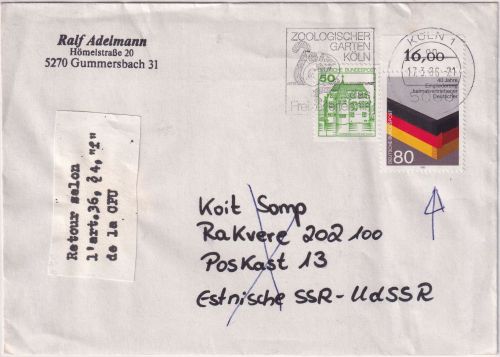 Ralf Adelmann
Hömelstraße 20
5270 Gummersbach 31
ZOOLOGISCHER
GARTEN
KÖLN
KÖLN 1
16,00
17.3.86-21
50
DEUTSCHE BUNDESPOST
40 Jahre
Eingliederung
heimatvertriebener
Deutscher
DEUTSCHE BUNDESPOST
80
Retour selon
l'art.36, § 4, "f"
de la CPU
Koit Somp
Rakvere 202 100
Poskast 13
Estnische SSR-UdSSR